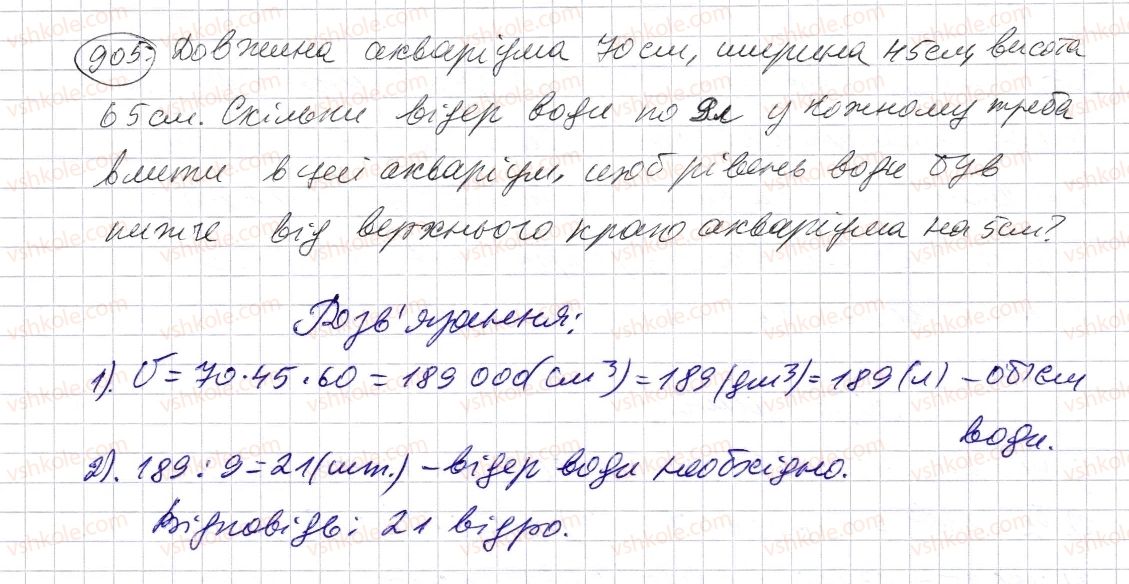 905. Довжина акваріума 70см, ширина 45см, висота
65см. Скільки відер води по 9л у кожному треба
влити в цей акваріум, щоб рівень води був
нижче від верхнього краю акваріума на 5см?
Розв'язання:
1). V = 70·45·60 = 189 000(см³) = 189(дм³) = 189(л) – об'єм
води.
2). 189 : 9 = 21(шт.) – відер води необхідно.
Відповідь: 21 відро.